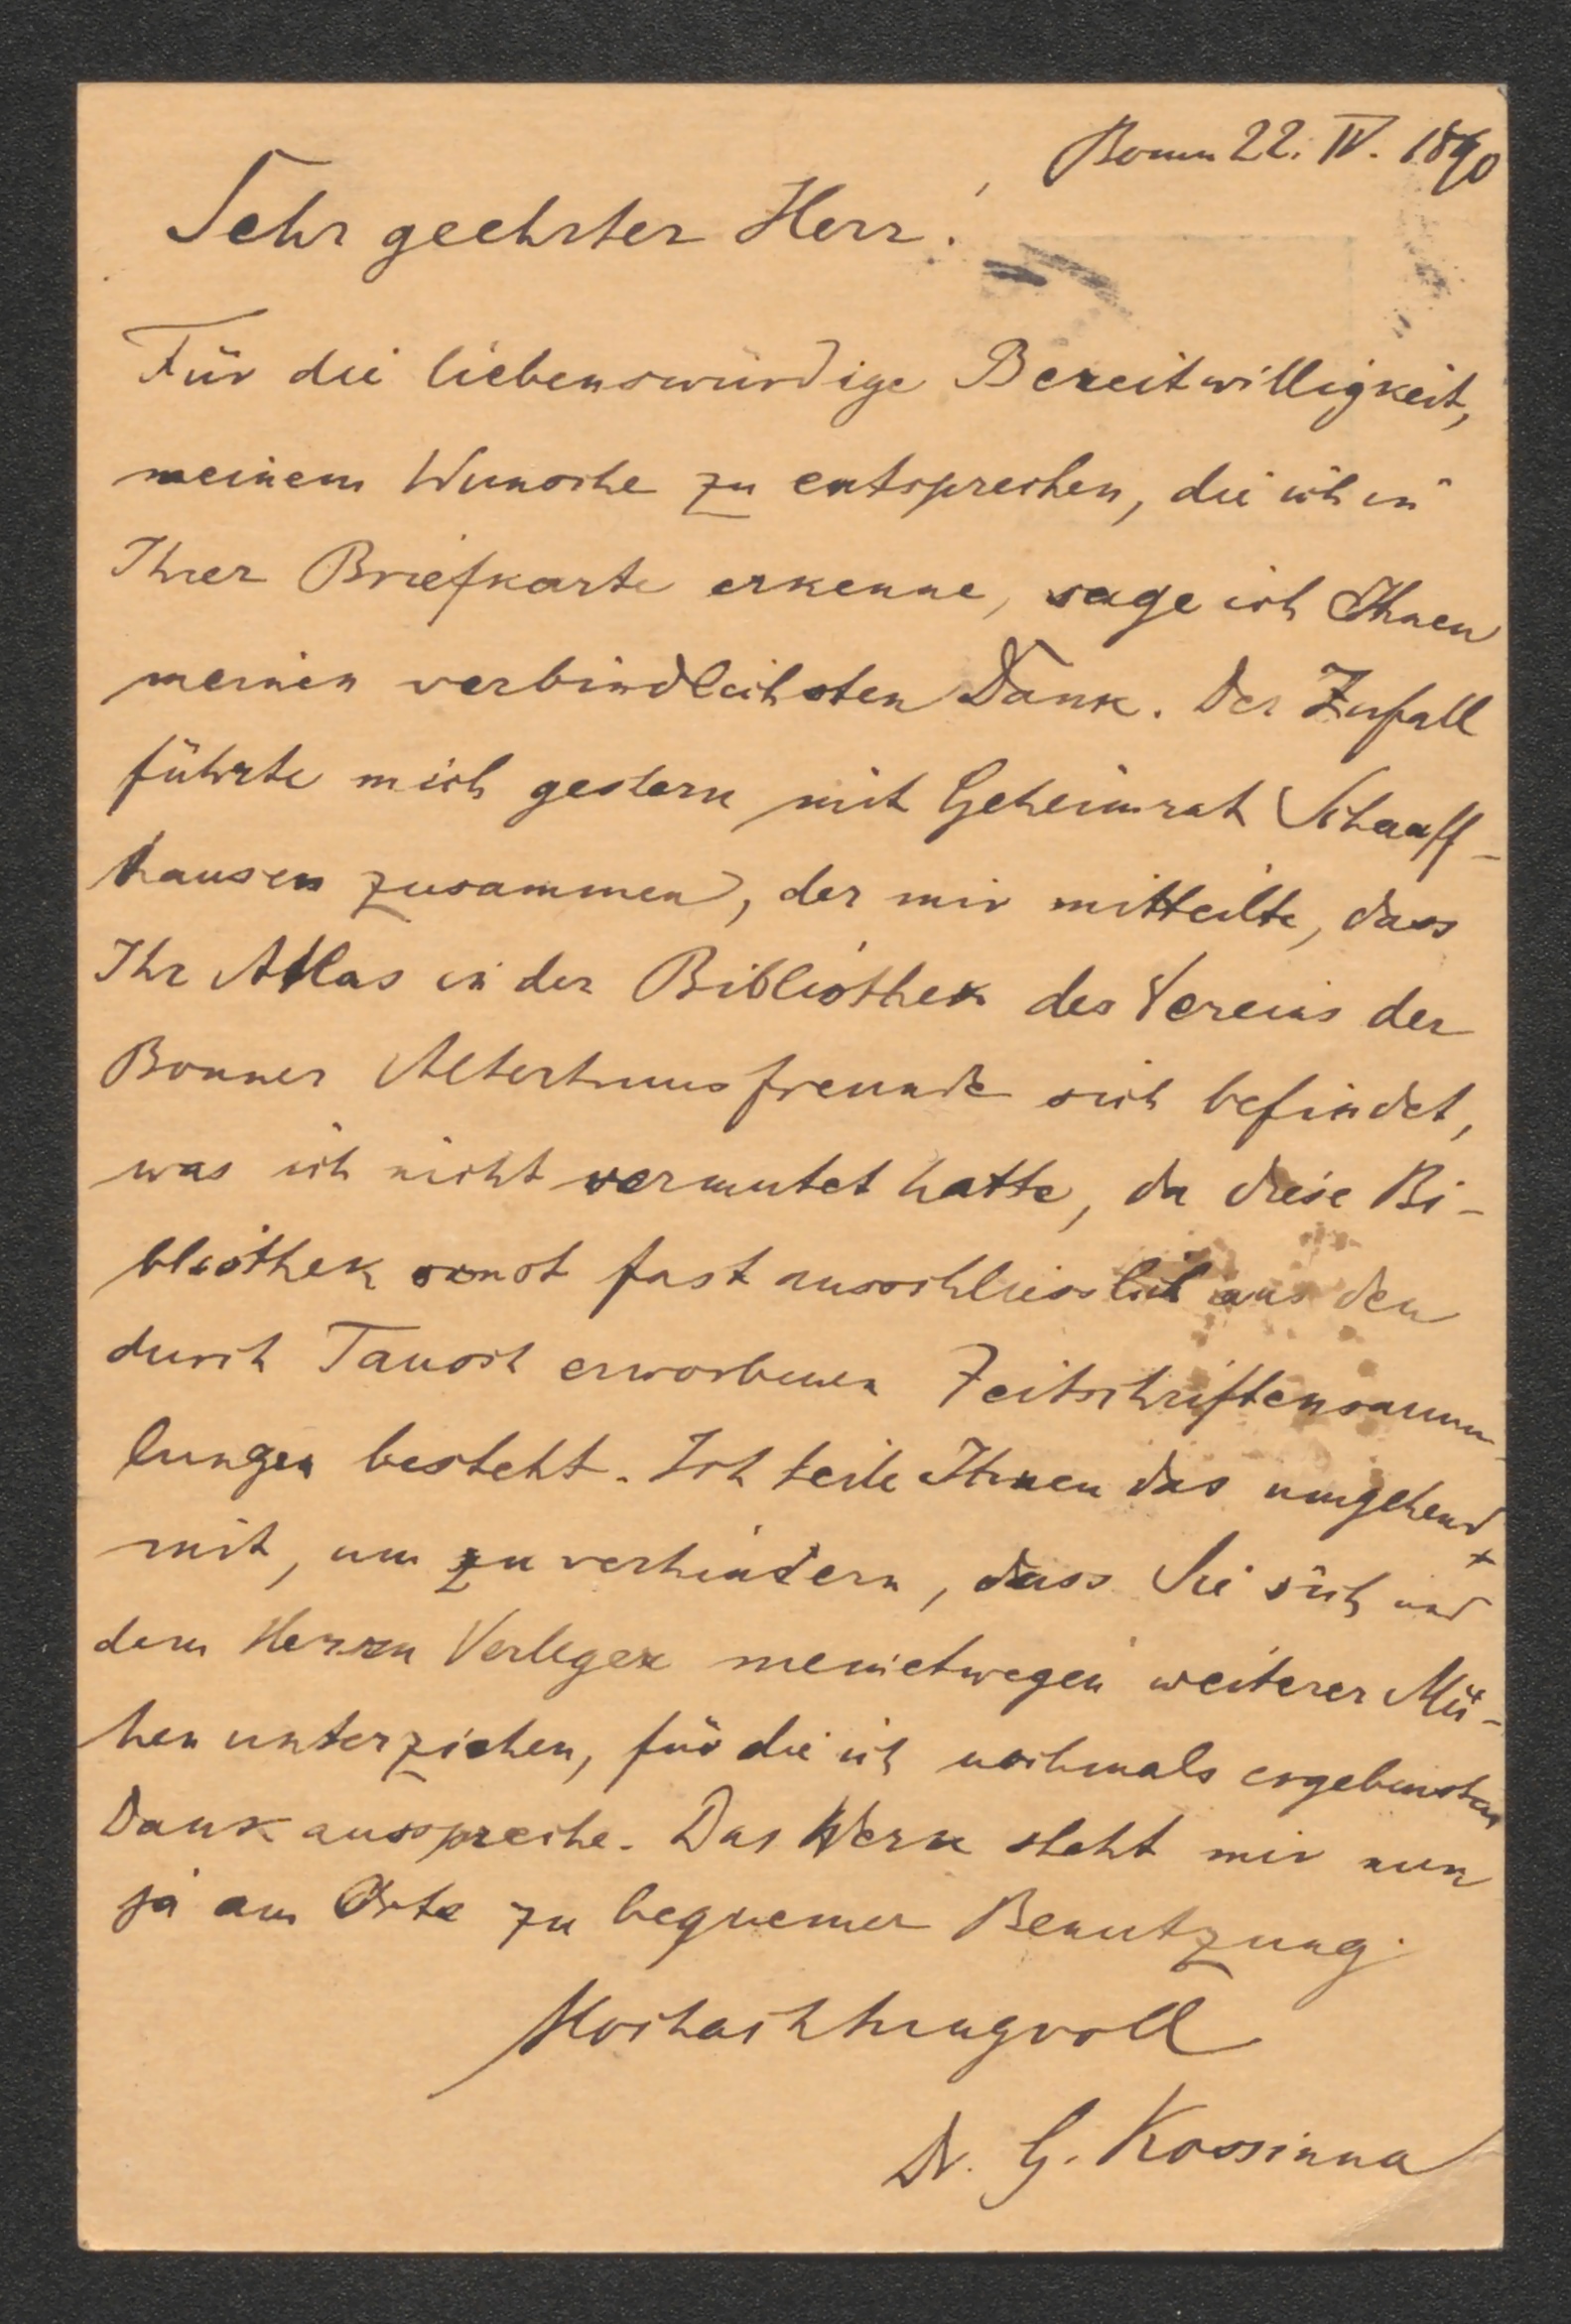 Bonn 22. IV. 1890
Sehr geehrter Herr!
Für die liebenswürdige Bereitwilligkeit,
meinem Wunsche zu entsprechen, die ich in
Ihrer Briefkarte erkenne, sage ich Ihnen
meinen verbindlichsten Dank. Der Zufall
führte mich gestern mit Geheimrat Schaaff-
hausen zusammen, der mir mitteilte, dass
Ihr Atlas in der Bibliothek des Vereins der
Bonner Altertumsfreunde sich befindet,
was ich nicht vermutet hatte, da diese Bi-
bliothek sonst fast ausschliesslich aus den
durch Tausch erworbenen Zeitschriftensamm-
lungen besteht. Ich teile Ihnen das umgehend
mit, um zu verhindern, dass Sie sich und
dem Herrn Verleger meinetwegen weiterer Mü-
hen unterziehen, für die ich nochmals ergebensten
Dank ausspreche. Das Werk steht mir nun
ja am Orte zu bequemer Benutzung.
Hochachtungvoll
Dr. G. Kossinna